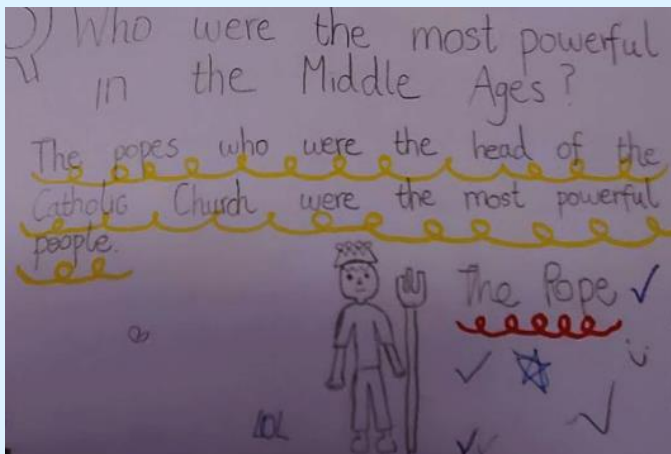 Who were the most powerful
in the Middle Ages?
The popes who were the head of the
Catholic Church were the most powerful
people.
The Pope
LOL